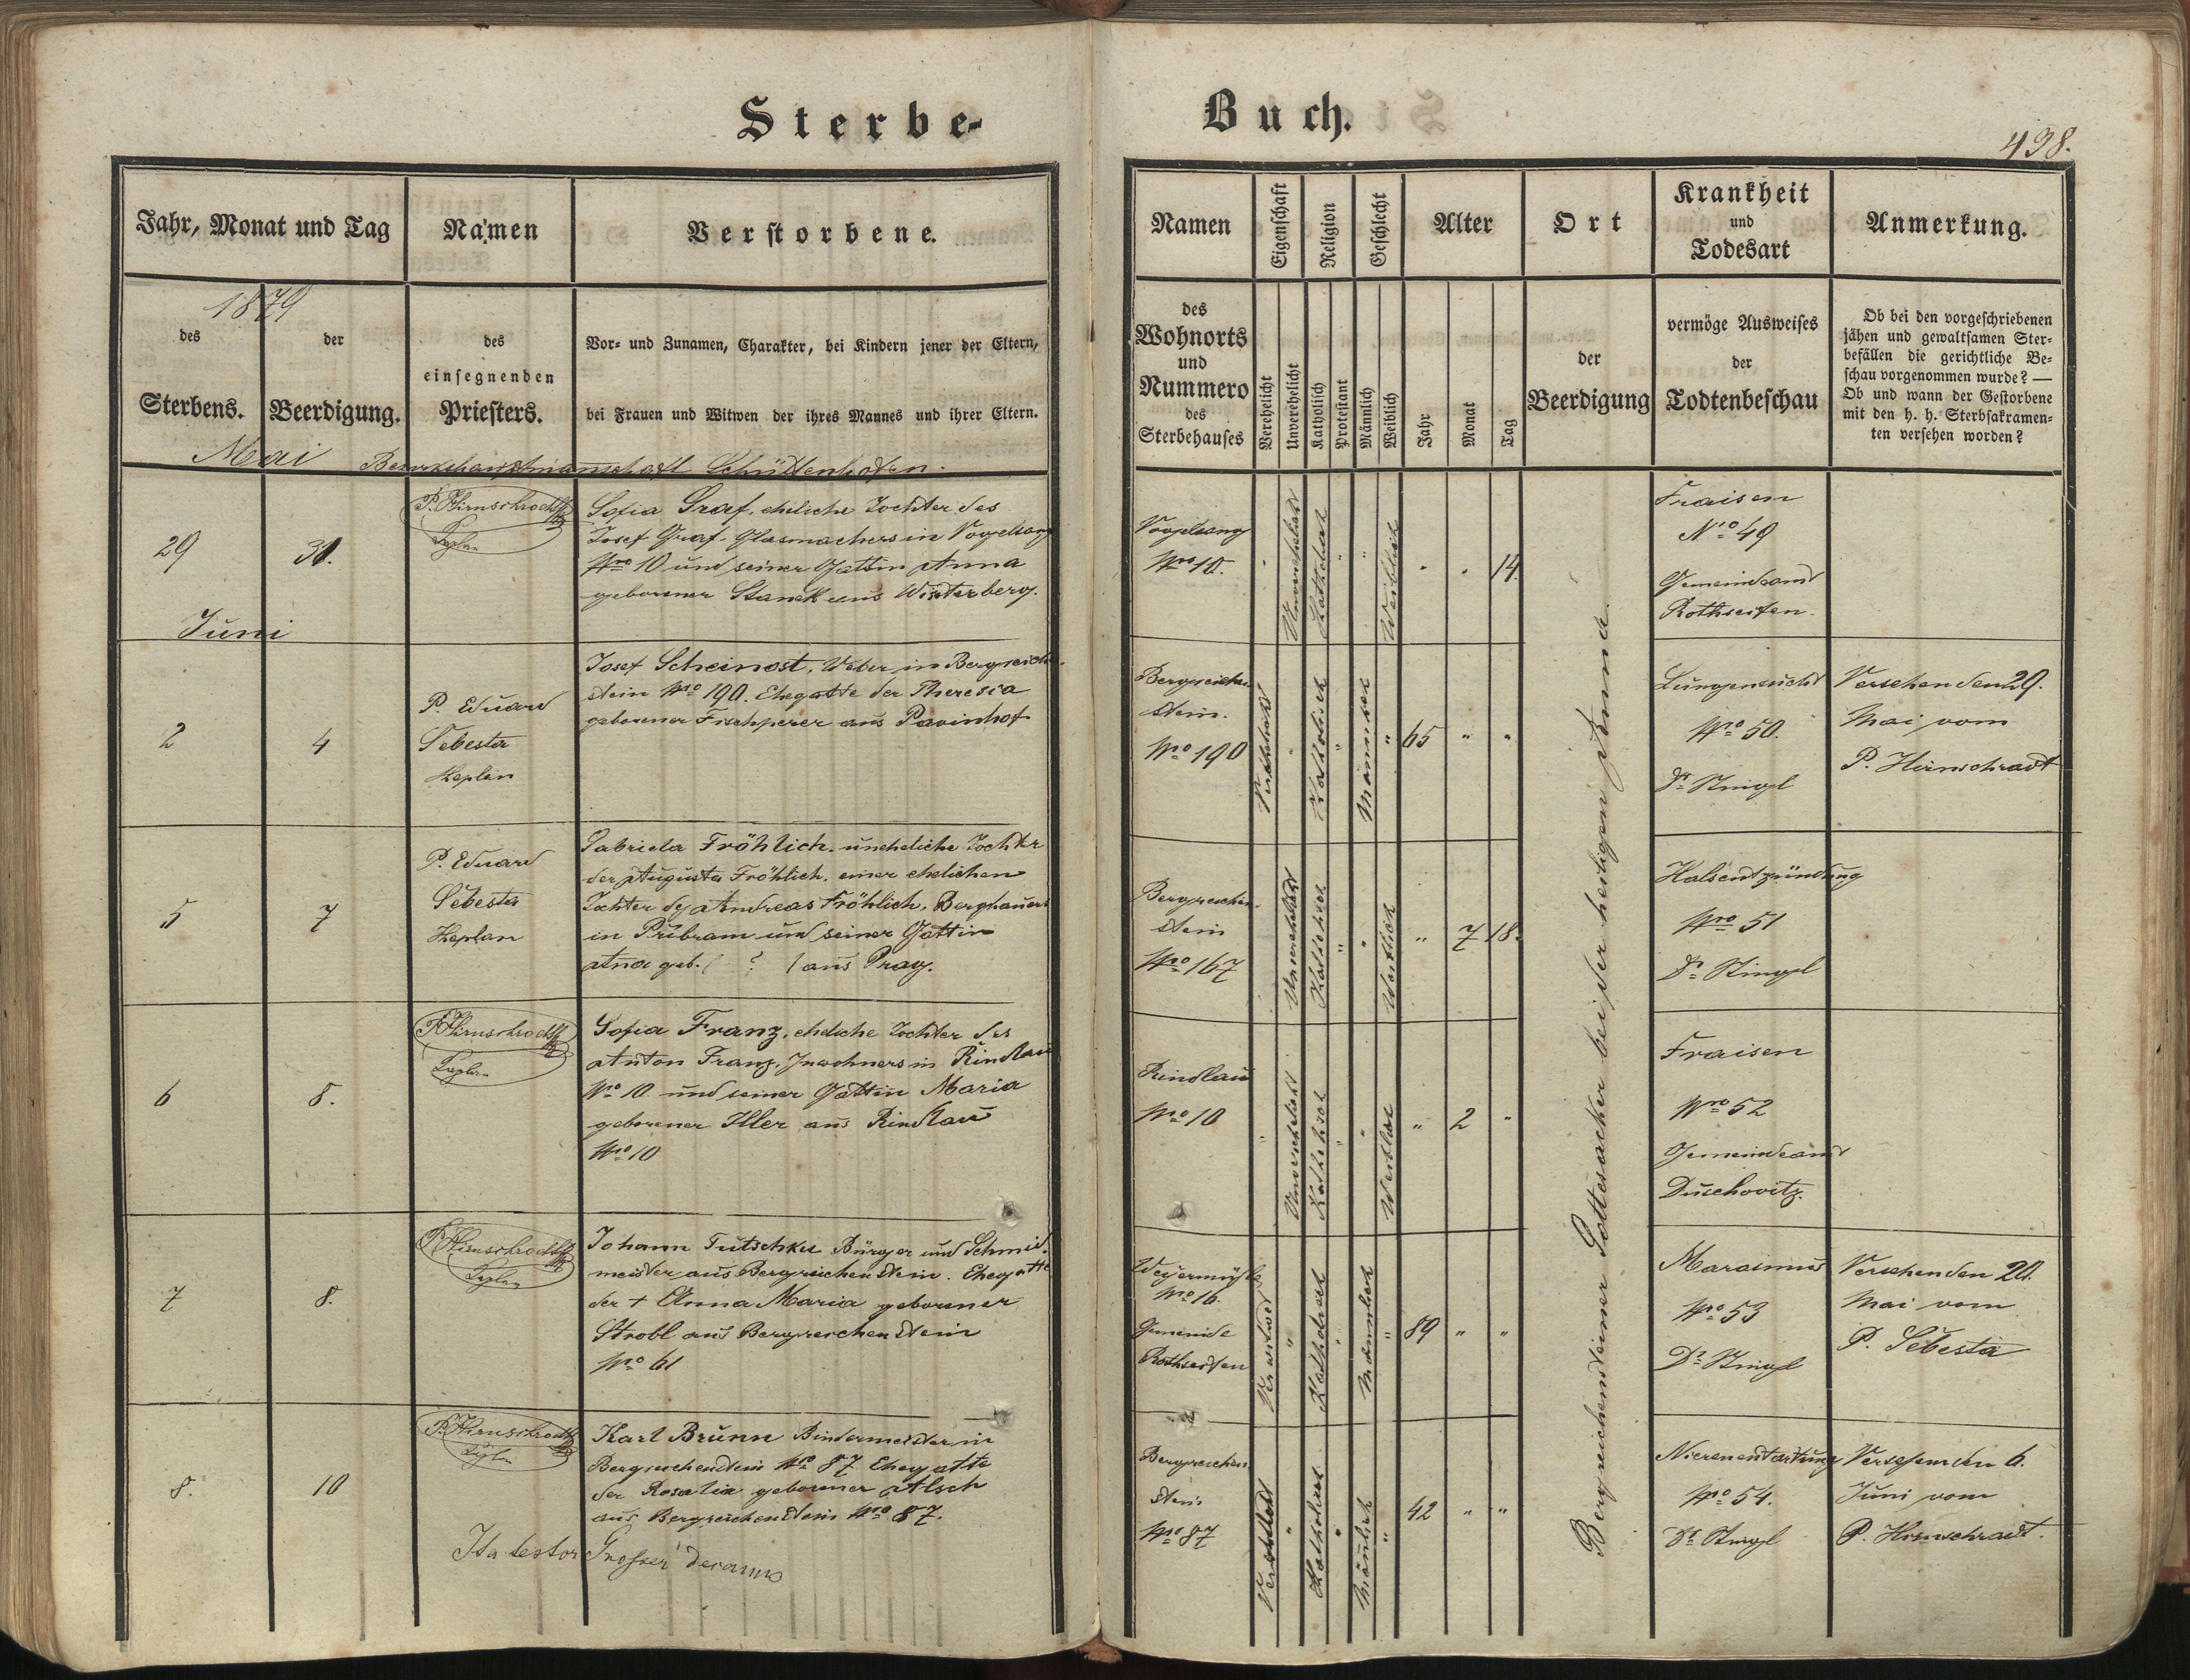 Sterbe-
Buch.
438.
Jahr, Monat und Tag
Namen
Verstorbene.
1879
des
Sterbens.
der
Beerdigung.
des
einsegnenden
Priesters.
Vor- und Zunamen, Charakter, bei Kindern jener der Eltern,
bei Frauen und Witwen der ihres Mannes und ihrer Eltern.
Mai Bezirkshauptmannschaft Schüttenhofen.
29
31.
P. Hirnschrodt
Kaplan
Sofia Graf, eheliche Tochter des
Josef Graf, Glasmachers in Vogelsang
Nro 10 und seiner Gattin Anna
geborener Stanek aus Winterberg.
Juni
2
4
P. Eduard
Šebesta
Kaplan
Josef Scheinost, Weber in Bergreichen-
stein Nro 190. Ehegatte der Theresia
geborener Fischperer aus Pavinhof
5
7
P. Eduard
Šebesta
Kaplan
Gabriela Fröhlich, uneheliche Tochter
der Augusta Fröhlich, einer ehelichen
Tochter des Andreas Fröhlich, Berghauers
in Přibram und seiner Gattin
Anna geb. ( ? ) aus Prag.
6
8.
P. Hirnschrodt
Kaplan
Sofia Franz, eheliche Tochter des
Anton Franz, Inwohners in Rindlau
Nro 10 und seiner Gattin Maria
geborener Iller aus Rindlau
Nro 10
7
8.
P. Hirnschrodt
Kaplan
Johann Tutschku Bürger und Schmid-
meister aus Bergreichenstein. Ehegatte
der + Anna Maria geborener
Strobl aus Bergreichenstein
Nro 61
8.
10
P. Hirnschrodt
Kaplan
Karl Brunn Bindermeister in
Bergreichenstein Nro 87 Ehegatte
der Rosalia geborener Alsch
aus Bergreichenstein Nro 87.
Ita testor Grosser Decanus
Namen
Eigenschaft
Religion
Geschlecht
Alter
Ort
Krankheit
und
Todesart
Anmerkung.
des
Wohnorts
und
Nummero
des
Sterbehauses
Verehelicht
Unverehelicht
Katholisch
Protestant
Männlich
Weiblich
Jahr
Monat
Tag
der
Beerdigung
vermöge Ausweises
der
Todtenbeschau
Ob bei den vorgeschriebenen
jähen und gewaltsamen Ster-
befällen die gerichtliche Be-
schau vorgenommen wurde? —
Ob und wann der Gestorbene
mit den h. h. Sterbsakramen-
ten versehen worden?
Vogelsang
Nro 10.
Unverehelicht
Katholisch
Weiblich
14
Fraisen
Nro 49
Gemeindeamt
Rothseifen
Bergreichen-
stein.
Nro 190
Verehelicht
Katholisch
Männlich
65 " "
Lungensucht
Nro 50.
Dr Stingl
Versehen den 29.
Mai vom
P. Hirnschrodt
Bergreichen-
stein
Nro 167
Unverehelicht
Katholisch
Weiblich
" 7 18.
Halsentzündung
Nro 51
Dr Stingl
Rindlau
Nro 10
Unverehelicht
Katholisch
Weiblich
" 2 "
Fraisen
Nro 52
Gemeindeamt
Duschowitz.
Weyermühle
Nro 16.
Gemeinde
Rothseifen
Verwitwet
Katholisch
Männlich
89 " "
Marasmus
Nro 53
Dr Stingl
Versehen den 20.
Mai vom
P. Šebesta
Bergreichen-
stein
Nro 87
Verehelicht
Katholisch
Männlich
42 " "
Nierenentartung
Nro 54.
Dr Stingl
Versehen den 6.
Juni vom
P. Hirnschrodt.
Bergreichensteiner Gottesacker bei der heiligen Anna.